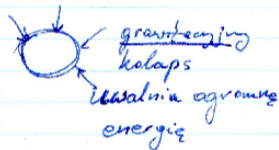 grawitacyjny
kolaps
uwalnia ogromną
energię